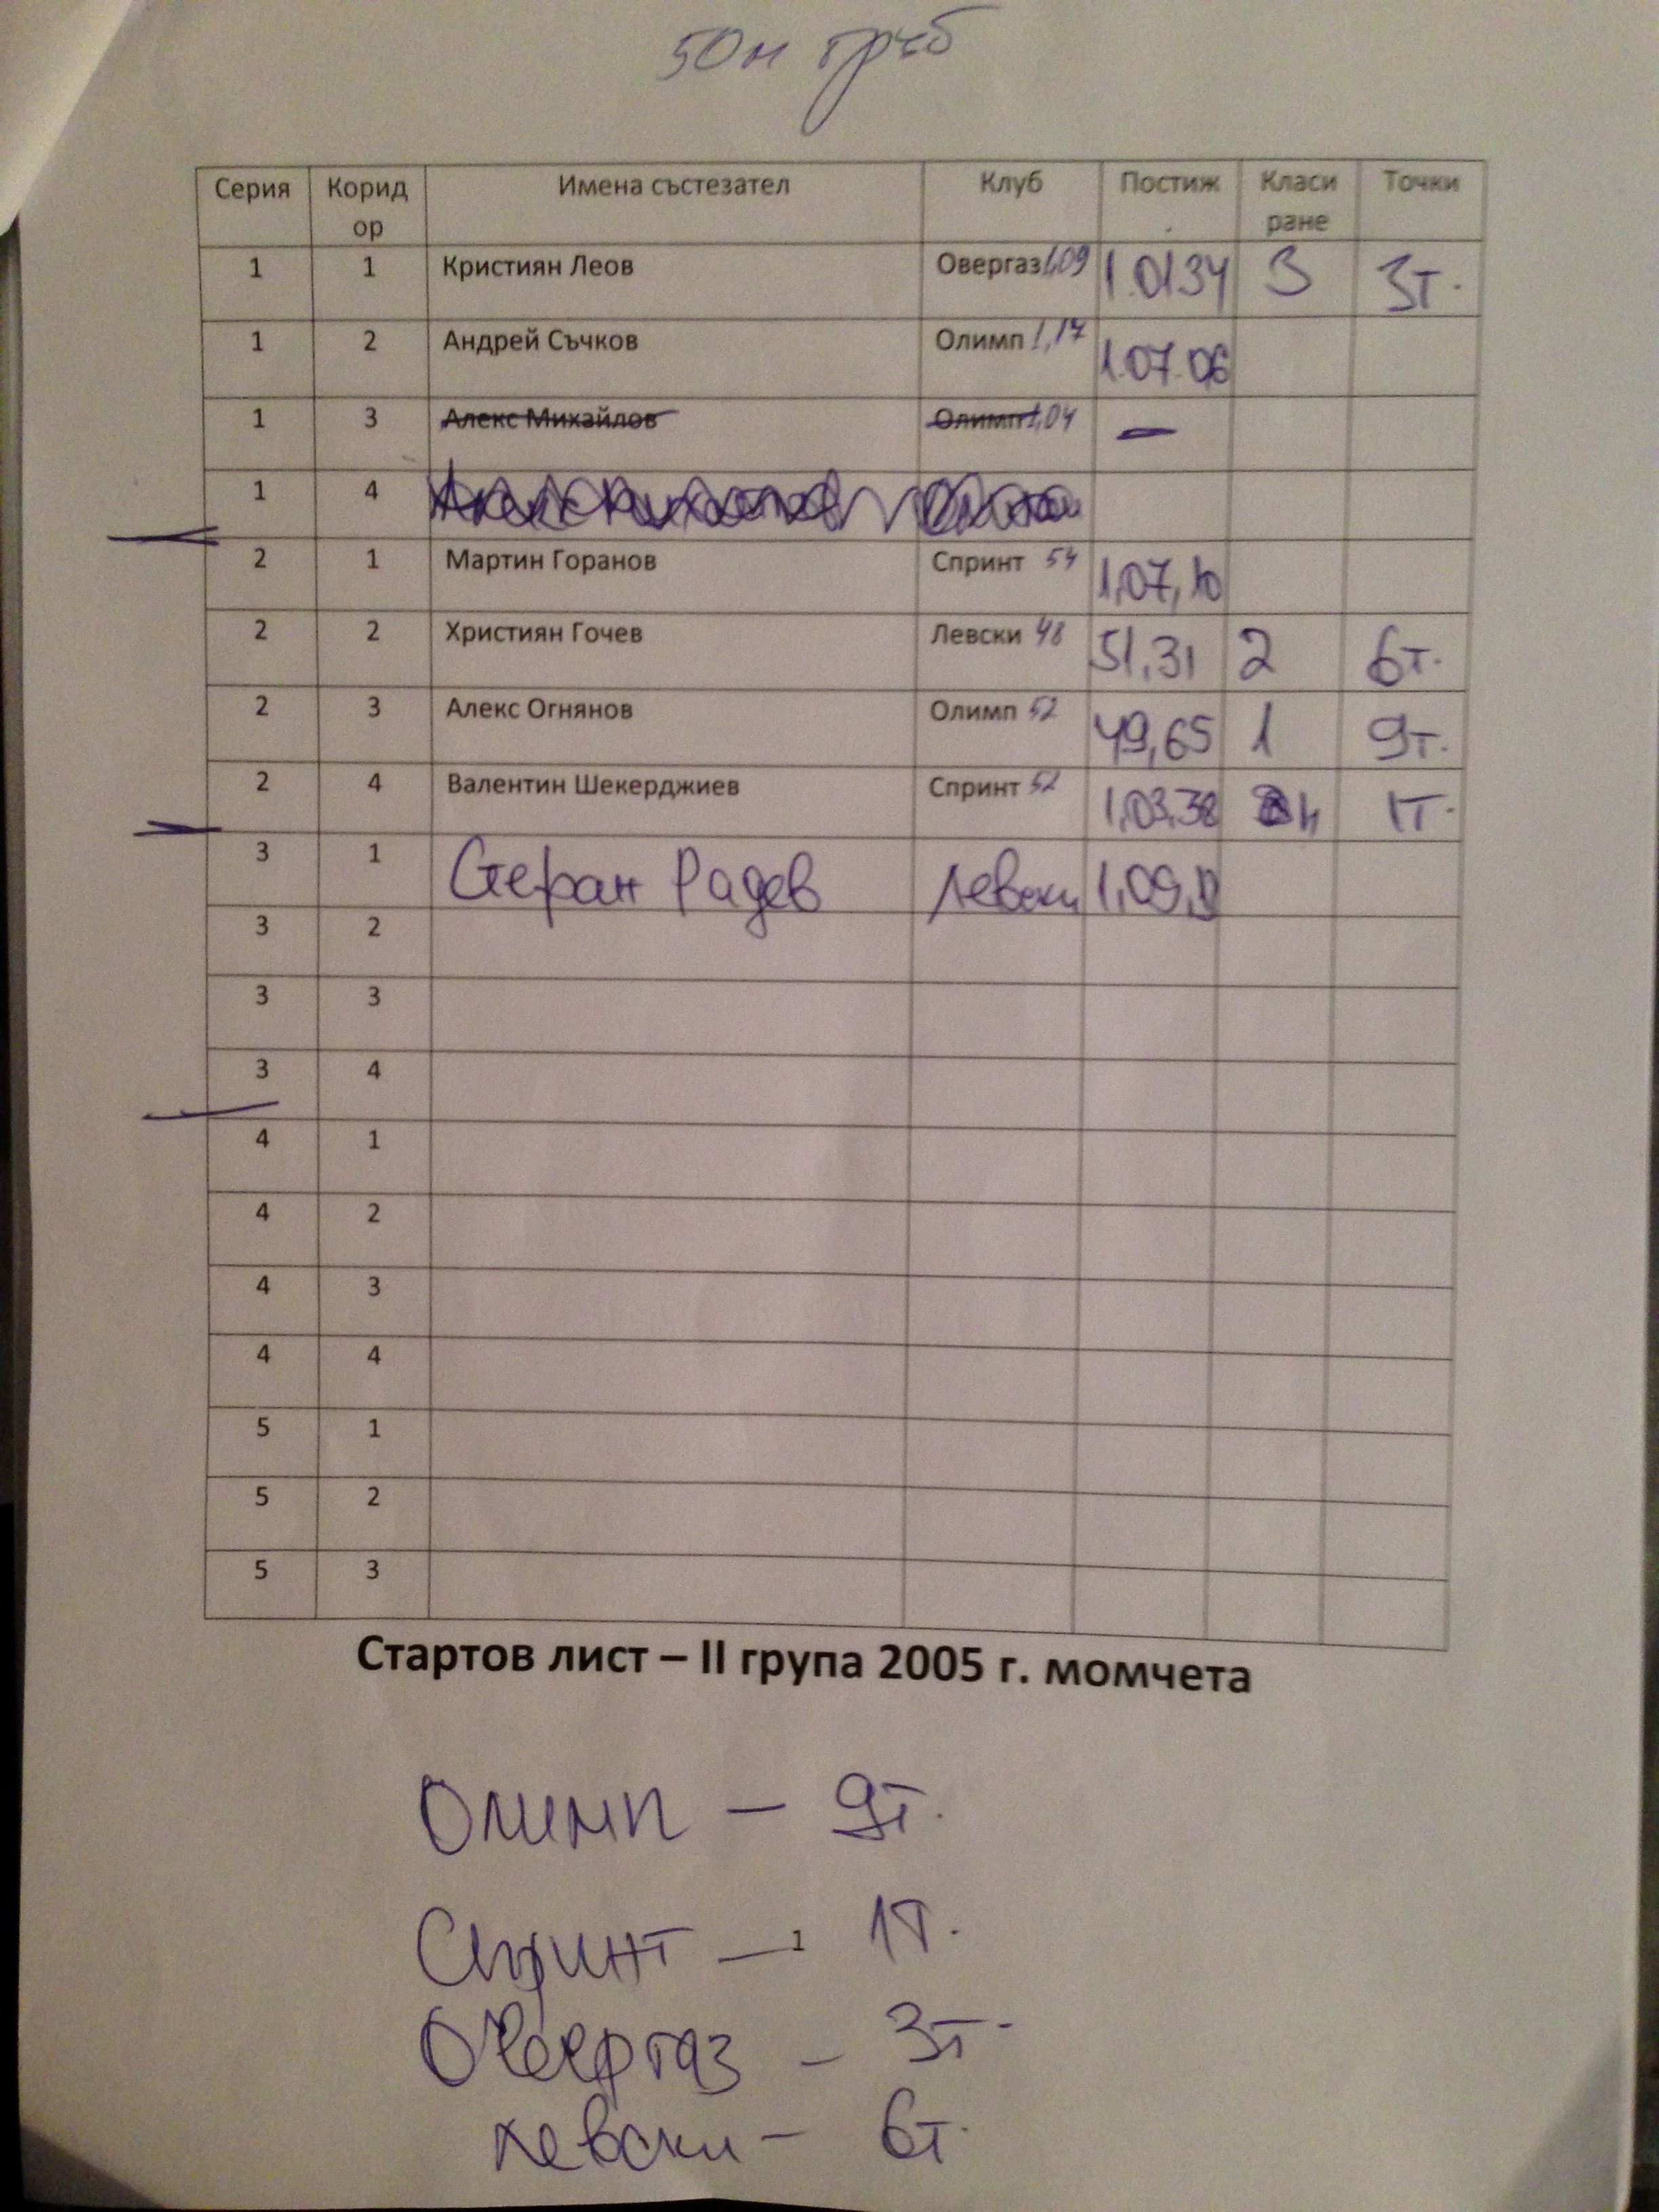 50м гръб
Серия Коридор Имена състезател Клуб Постиж. Класиране Точки
1 1 Кристиян Леов Овергаз 1,09 1.01.34 3 3т.
1 2 Андрей Съчков Олимп 1,17 1.07.06
1 3 Алекс Михайлов Олимп 1,04 —
1 4
2 1 Мартин Горанов Спринт 54 1,07,10
2 2 Християн Гочев Левски 48 51,31 2 6т.
2 3 Алекс Огнянов Олимп 52 49,65 1 9т.
2 4 Валентин Шекерджиев Спринт 52 1,03,38 4 1т.
3 1 Стефан Радев Левски
3 2
3 3
3 4
4 1
4 2
4 3
4 4
5 1
5 2
5 3
Стартов лист – II група 2005 г. момчета
Олимп – 9т.
Спринт – 1т.
1
Овергаз – 3т.
Левски – 6т.